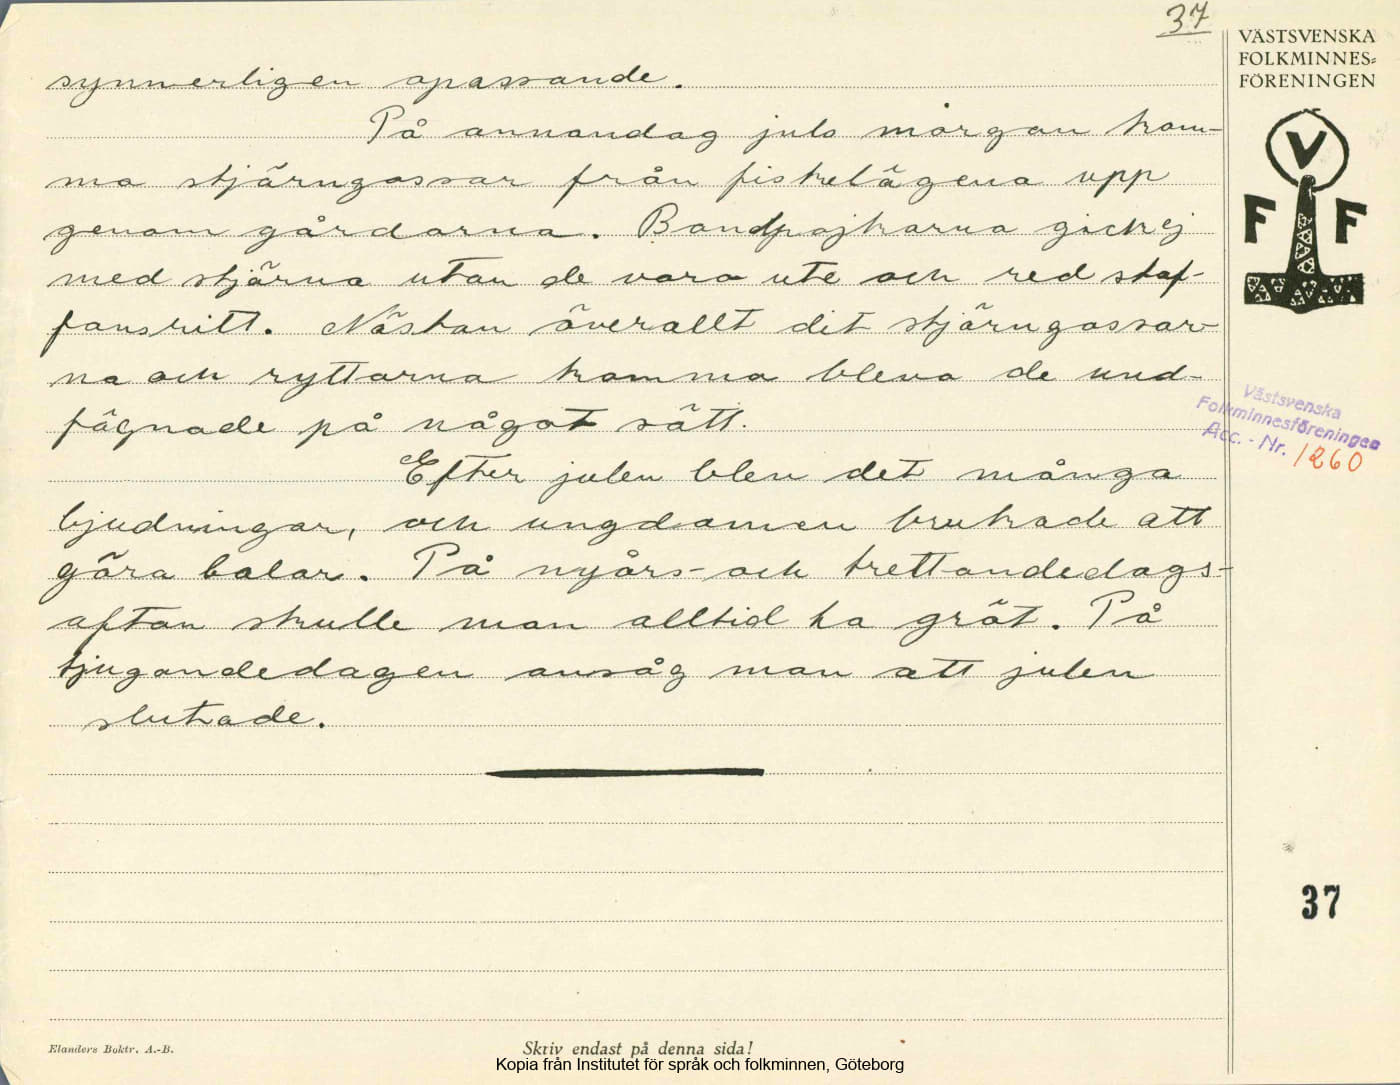 37
VÄSTSVENSKA
FOLKMINNES=
FÖRENINGEN
V
F F
synnerligen opassande.
På annandag juls morgon kom-
ma stjärngossar från fiskelägena upp
genom gårdarna. Bondpojkarna gick ej
med stjärna utan de voro ute och red staf-
fansritt. Nästan överallt dit stjärngossar-
na och ryttarna komma bleva de und-
fägnade på något sätt.
Efter julen blev det många
bjudningar, och ungdomen brukade att
göra balar. På nyårs- och trettondedags-
afton skulle man alltid ha gröt. På
tjugondedagen ansåg man att julen
slutade.
Västsvenska
Folkminnesföreningen
Acc. - Nr. 1260
37
Elanders Boktr. A.-B.
Skriv endast på denna sida!
Kopia från Institutet för språk och folkminnen, Göteborg